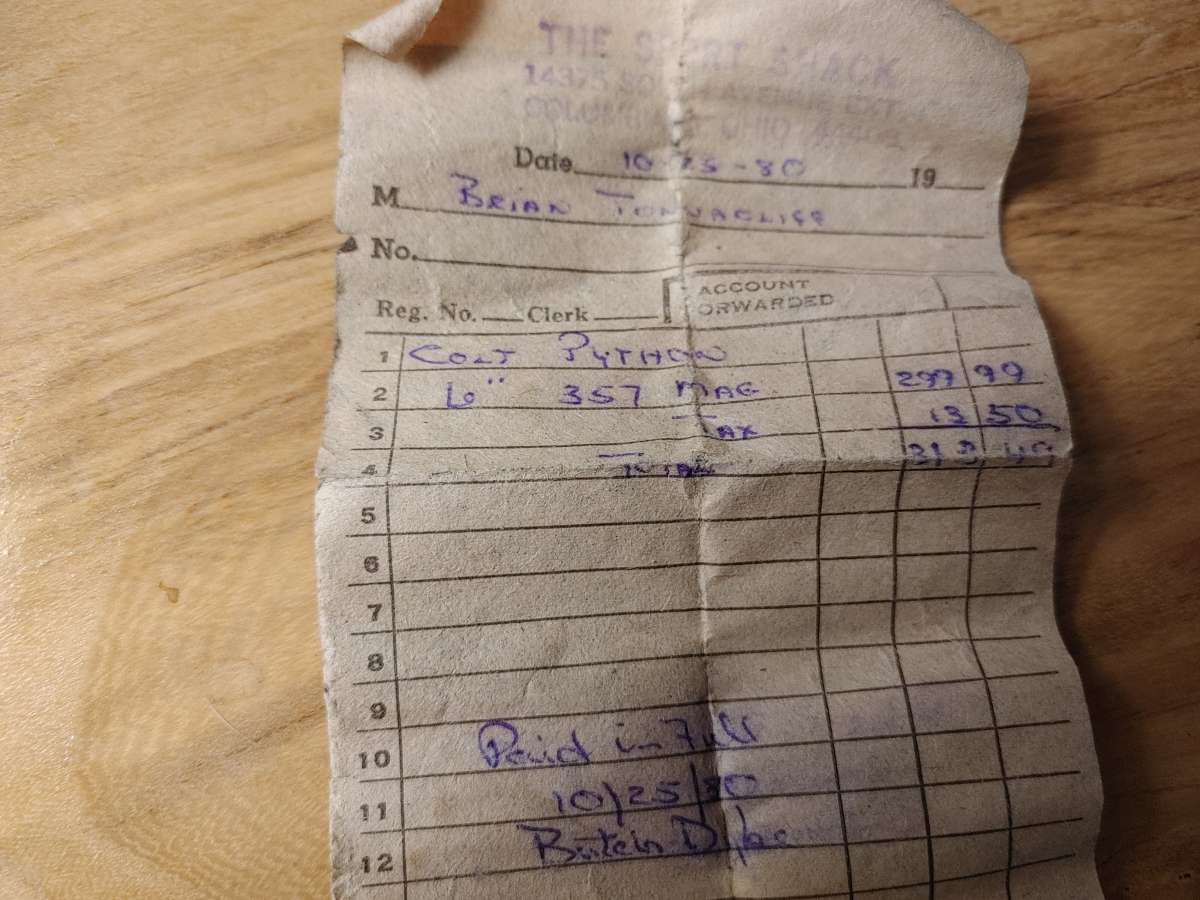 THE SPORT SHACK
14375 AVENUE EXT
OHIO
Date 10-25-80 19
M BRIAN
No.
Reg. No. Clerk ACCOUNT FORWARDED
1 COLT PYTHON
2 6" 357 MAG 299 99
3 TAX 13 50
4 TOTAL 313 49
5
6
7
8
9
10 Paid in Full
11 10/25/80
12